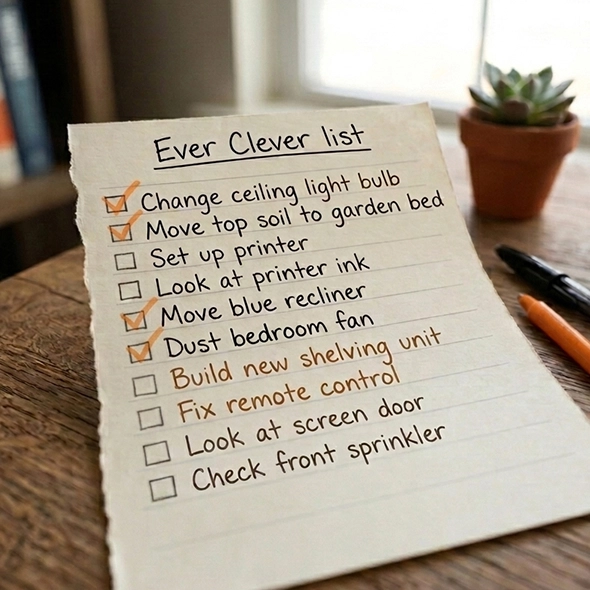 Ever Clever list
Change ceiling light bulb
Move top soil to garden bed
Set up printer
Look at printer ink
Move blue recliner
Dust bedroom fan
Build new shelving unit
Fix remote control
Look at screen door
Check front sprinkler